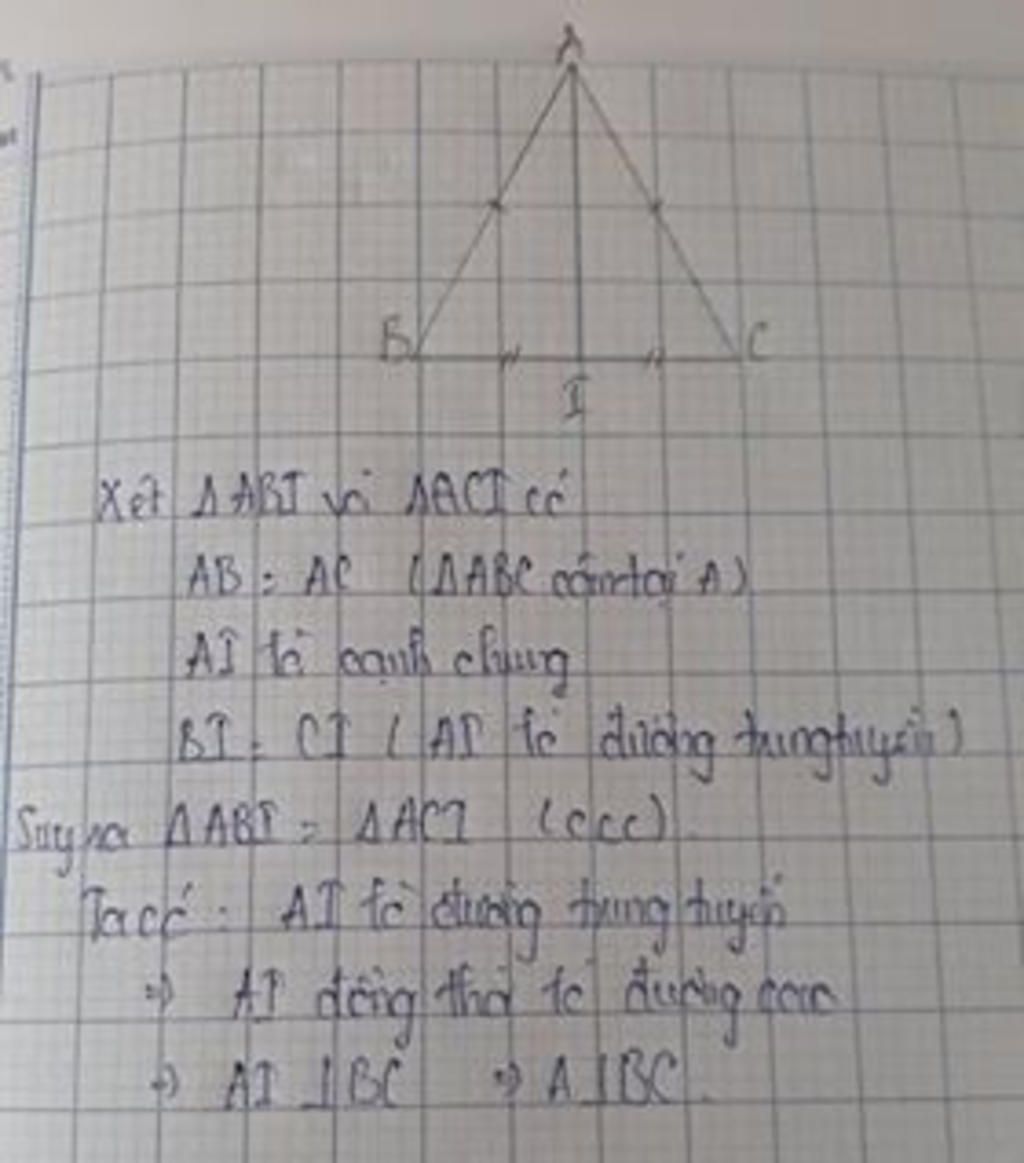 A
B
C
I
Xét ΔABI và ΔACI có
AB = AC (ΔABC cân tại A)
AI là cạnh chung
BI = CI (AI là đường trung tuyến)
Suy ra ΔABI = ΔACI (ccc).
Ta có: AI là đường trung tuyến
=> AI đồng thời là đường cao
=> AI ⊥ BC => A ⊥ BC.